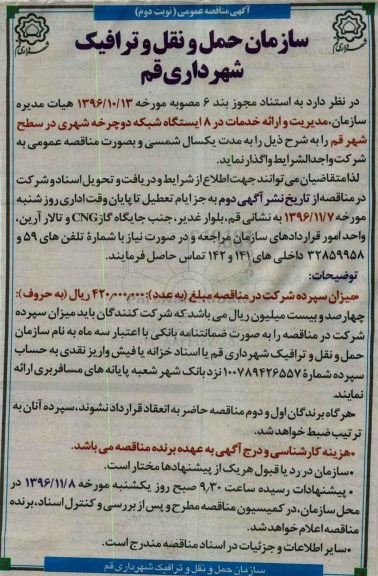 آگهی مناقصه عمومی (نوبت دوم)
سازمان حمل و نقل و ترافیک
شهرداری قم
در نظر دارد به استناد مجوز بند ۶ مصوبه مورخه ۱۳۹۶/۱۰/۱۳ هیات مدیره
سازمان، مدیریت و ارائه خدمات در ۸ ایستگاه شبکه دوچرخه شهری در سطح
شهر قم را به شرح ذیل را به مدت یکسال شمسی و بصورت مناقصه عمومی به
شرکت واجدالشرایط واگذار نماید.
لذا متقاضیان می توانند جهت اطلاع از شرایط و دریافت و تحویل اسناد و شرکت
در مناقصه از تاریخ نشر آگهی دوم به جز ایام تعطیل تا پایان وقت اداری روز شنبه
مورخه ۱۳۹۶/۱۱/۷ به نشانی قم، بلوار غدیر، جنب جایگاه گاز CNG و تالار آرین،
واحد امور قراردادهای سازمان مراجعه و در صورت نیاز با شمارۀ تلفن های ۵۹ و
۳۲۸۵۹۹۵۸ داخلی های ۱۴۱ و ۱۴۲ تماس حاصل فرمایند.
توضیحات:
•میزان سپرده شرکت در مناقصه مبلغ (به عدد): ۴۲۰٫۰۰۰٫۰۰۰ ریال (به حروف):
چهارصد و بیست میلیون ریال می باشد که شرکت کنندگان باید میزان سپرده
شرکت در مناقصه را به صورت ضمانتنامه بانکی با اعتبار سه ماه به نام سازمان
حمل و نقل و ترافیک شهرداری قم یا اسناد خزانه یا فیش واریز نقدی به حساب
سپرده شمارۀ ۱۰۰۷۸۹۴۲۶۵۵۷ نزد بانک شهر شعبه پایانه های مسافربری ارائه
نمایند.
•هرگاه برندگان اول و دوم مناقصه حاضر به انعقاد قرارداد نشوند، سپرده آنان به
ترتیب ضبط خواهد شد.
•هزینه کارشناسی و درج آگهی به عهده برنده مناقصه می باشد.
•سازمان در رد یا قبول هر یک از پیشنهادها مختار است.
•پیشنهادات رسیده ساعت ۹٫۳۰ صبح روز یکشنبه مورخه ۱۳۹۶/۱۱/۸ در
محل سازمان، در کمیسیون مناقصه مطرح و پس از بررسی و کنترل اسناد، برنده
مناقصه اعلام خواهد شد.
•سایر اطلاعات و جزئیات در اسناد مناقصه مندرج است.
سازمان حمل و نقل و ترافیک شهرداری قم